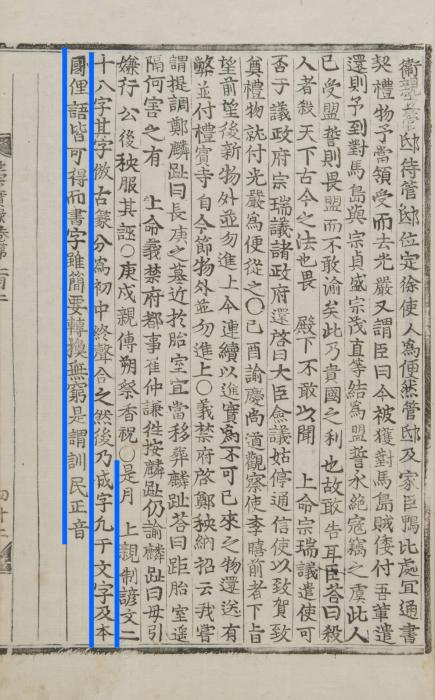 衛親塋邸待管邸位定徐使人爲便然管邸及家臣鴨比處宜通書
契禮物予當領受而去光嚴又謂臣曰今被獲對馬島賊倭付吾輩遣
還則予到對馬島與宗貞盛宗茂直等結爲盟誓永絶寇竊之虞此人
已受盟誓則畏盟而不敢渝矣此乃貴國之利也故敢告耳臣荅曰殺
人者殺天下古今之法也畏 殿下不敢以聞 上命宗瑞議遣使可
否于議政府宗瑞議諸政府還啓曰大臣僉議姑停通信使以致賀致
奠禮物就付光嚴爲便從之○己酉諭慶尚道觀察使李暿前者下旨
望前望後新物外並勿進上今連續以進實爲不可已來之物還送有
弊並付禮賓寺自今節物外並勿進上○義禁府啓鄭秧納招云我嘗
謂提調鄭麟趾曰長庚之墓近於胎室宜當移葬麟趾荅曰距胎室遥
隔何害之有 上命義禁府都事崔仲謙徃按麟趾仍諭麟趾曰毋引
嫌行公後秧服其誣○庚戌親傳朔祭香祝○是月 上親制諺文二
十八字其字倣古篆分爲初中終聲合之然後乃成字凢干文字及本
國俚語皆可得而書字雖簡要轉換無窮是謂訓民正音